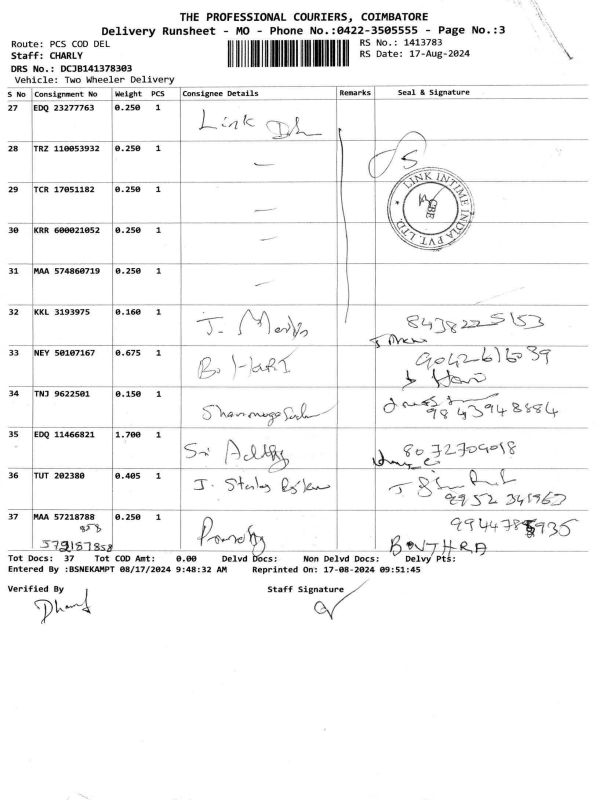 THE PROFESSIONAL COURIERS, COIMBATORE
Delivery Runsheet - MO - Phone No.:0422-3505555 - Page No.:3
Route: PCS COD DEL
RS No.: 1413783
Staff: CHARLY
RS Date: 17-Aug-2024
DRS No.: DCJB141378303
Vehicle: Two Wheeler Delivery
S No Consignment No Weight PCS Consignee Details Remarks Seal & Signature
27 EDQ 23277763 0.250 1 Link
28 TRZ 110053932 0.250 1 —
LINK INTIME INDIA PVT. LTD. * CBE *
29 TCR 17051182 0.250 1 —
30 KRR 600021052 0.250 1 —
31 MAA 574860719 0.250 1 —
32 KKL 3193975 0.160 1 J. 8438225153
33 NEY 50107167 0.675 1 B. HARI 9042616039
Hari
34 TNJ 9622501 0.150 1 9843948884
35 EDQ 11466821 1.700 1 Sri 8072709018
36 TUT 202380 0.405 1 J. Stanley
9952 341963
37 MAA 57218788 0.250 1 9944785935
858
579187858 BONTHRA
Tot Docs: 37 Tot COD Amt: 0.00 Delvd Docs: Non Delvd Docs: Delvy Pts:
Entered By :BSNEKAMPT 08/17/2024 9:48:32 AM Reprinted On: 17-08-2024 09:51:45
Verified By Staff Signature